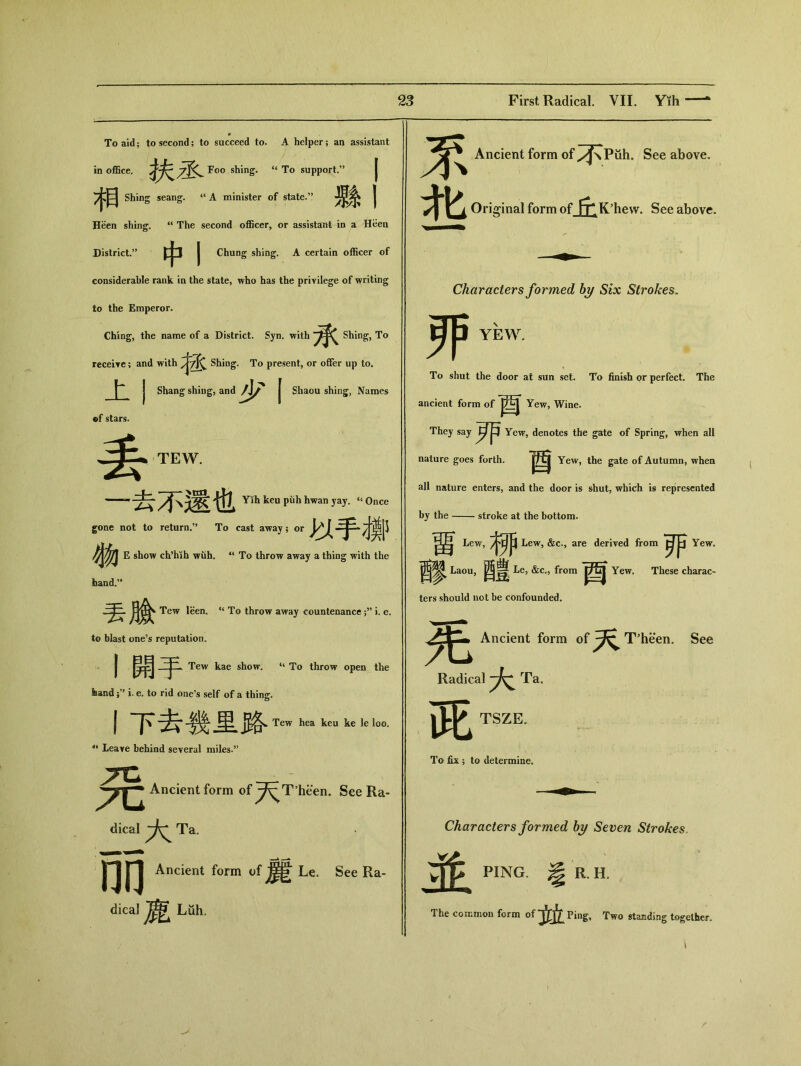 23 First Radical. VII. Yĭh 一
To aid; to second; to succeed to. A helper; an assistant
in office. 扶丞 Foo shing. “ To support.” 丨
相 Shing seang. “ A minister of state.” 縣 丨
Hëen shing. “ The second officer, or assistant in a Hëen
District.” 中 丨 Chung shing. A certain officer of
considerable rank in the state, who has the privilege of writing
to the Emperor.
Ching, the name of a District. Syn. with 承 Shing, To
receive; and with 拯 Shing. To present, or offer up to.
上 丨 Shang shing, and 少 丨 Shaou shing, Names
of stars.
丢 TEW.
一去不還也 Yĭh keu pŭh hwan yay. “ Once
gone not to return.” To cast away; or 以手擲
物 E show ch’hĭh wŭh. “ To throw away a thing with the
hand.”
丟臉 Tew lëen. “ To throw away countenance;” i. e.
to blast one’s reputation.
丨開手 Tew kae show. “ To throw open the
hand;” i. e. to rid one’s self of a thing.
丨下去幾里路 Tew hea keu ke le loo.
“ Leave behind several miles.”
Ancient form of 天 T’hëen. See Ra-
dical 大 Ta.
丽 Ancient form of 麗 Le. See Ra-
dical 鹿 Lŭh.
Ancient form of 不 Pŭh. See above.
Original form of 丘 K’hew. See above.
Characters formed by Six Strokes.
丣 YÈW.
To shut the door at sun set. To finish or perfect. The
ancient form of 酉 Yew, Wine.
They say 丣 Yew, denotes the gate of Spring, when all
nature goes forth. 酉 Yew, the gate of Autumn, when
all nature enters, and the door is shut, which is represented
by the —— stroke at the bottom.
Lew, 桺 Lew, &c., are derived from 丣 Yew.
醪 Laou, 醴 Le, &c., from 酉 Yew. These charac-
ters should not be confounded.
Ancient form of 天 T’hëen. See
Radical 大 Ta.
TSZE.
To fix; to determine.
Characters formed by Seven Strokes.
並 PING. R. H.
The common form of 竝 Ping, Two standing together.